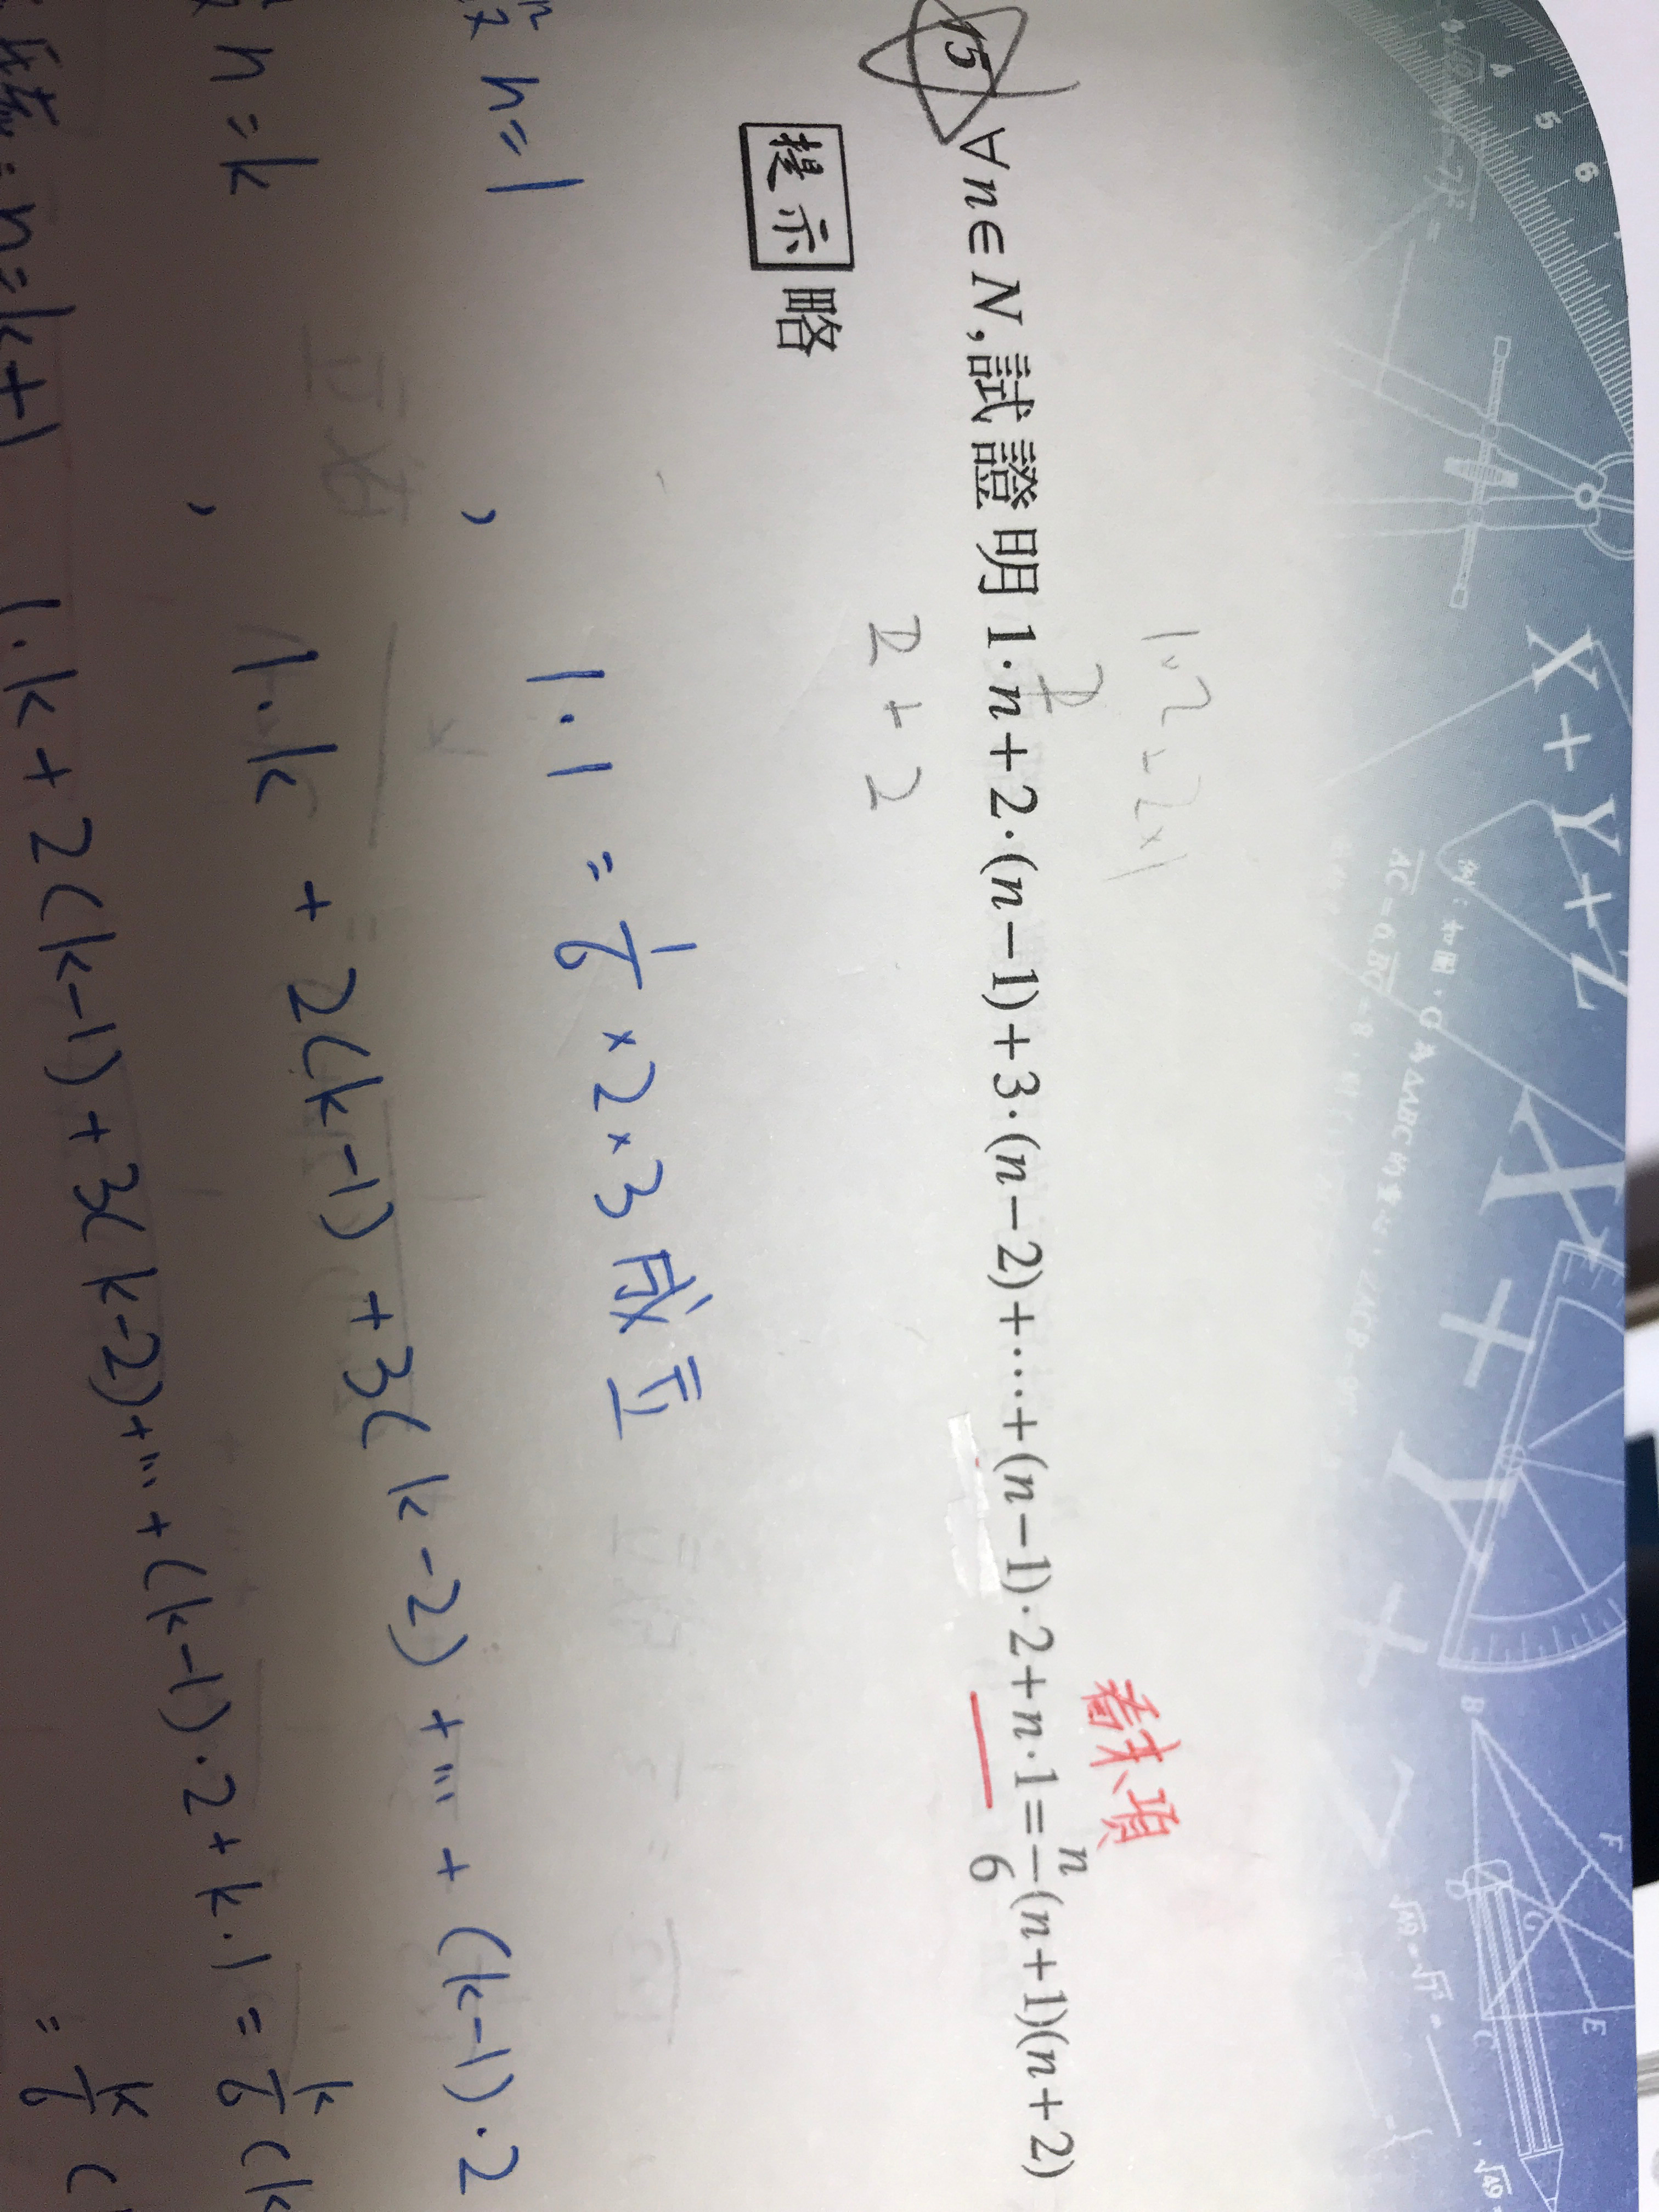 X+Y+Z
X+Y+Z
4 5 6
15 ∀n∈N,試證明1·n+2·(n−1)+3·(n−2)+⋯+(n−1)·2+n·1=n/6(n+1)(n+2)
看末項
1·2 - 2×1
2
2+2
提示 略
n=1 , 1·1 = 1/6 ×2×3 成立
n=k , 1·k + 2(k-1) +3(k-2) +⋯ + (k-1)·2
n=k+1 1·k+2(k-1)+3(k-2)+⋯+(k-1)·2+k·1= k/6 (k
= k/6 (